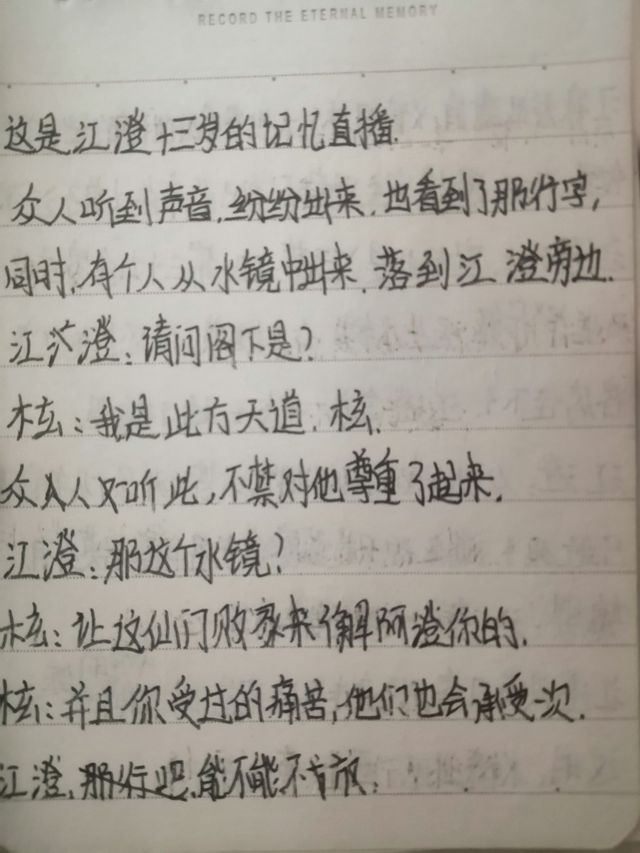 RECORD THE ETERNAL MEMORY
这是江澄十三岁的记忆直播.
众人听到声音,纷纷出来,也看到了那行字,
同时,有个人从水镜中出来,落到江澄旁边.
江澄:请问阁下是?
枝:我是此方天道,枝.
众人听此,不禁对他尊重了起来.
江澄:那这个水镜?
枝:让这仙门败家来了解阿澄你的.
枝:并且你受过的痛苦,他们也会承受一次.
江澄,那行吧,能不能不放.